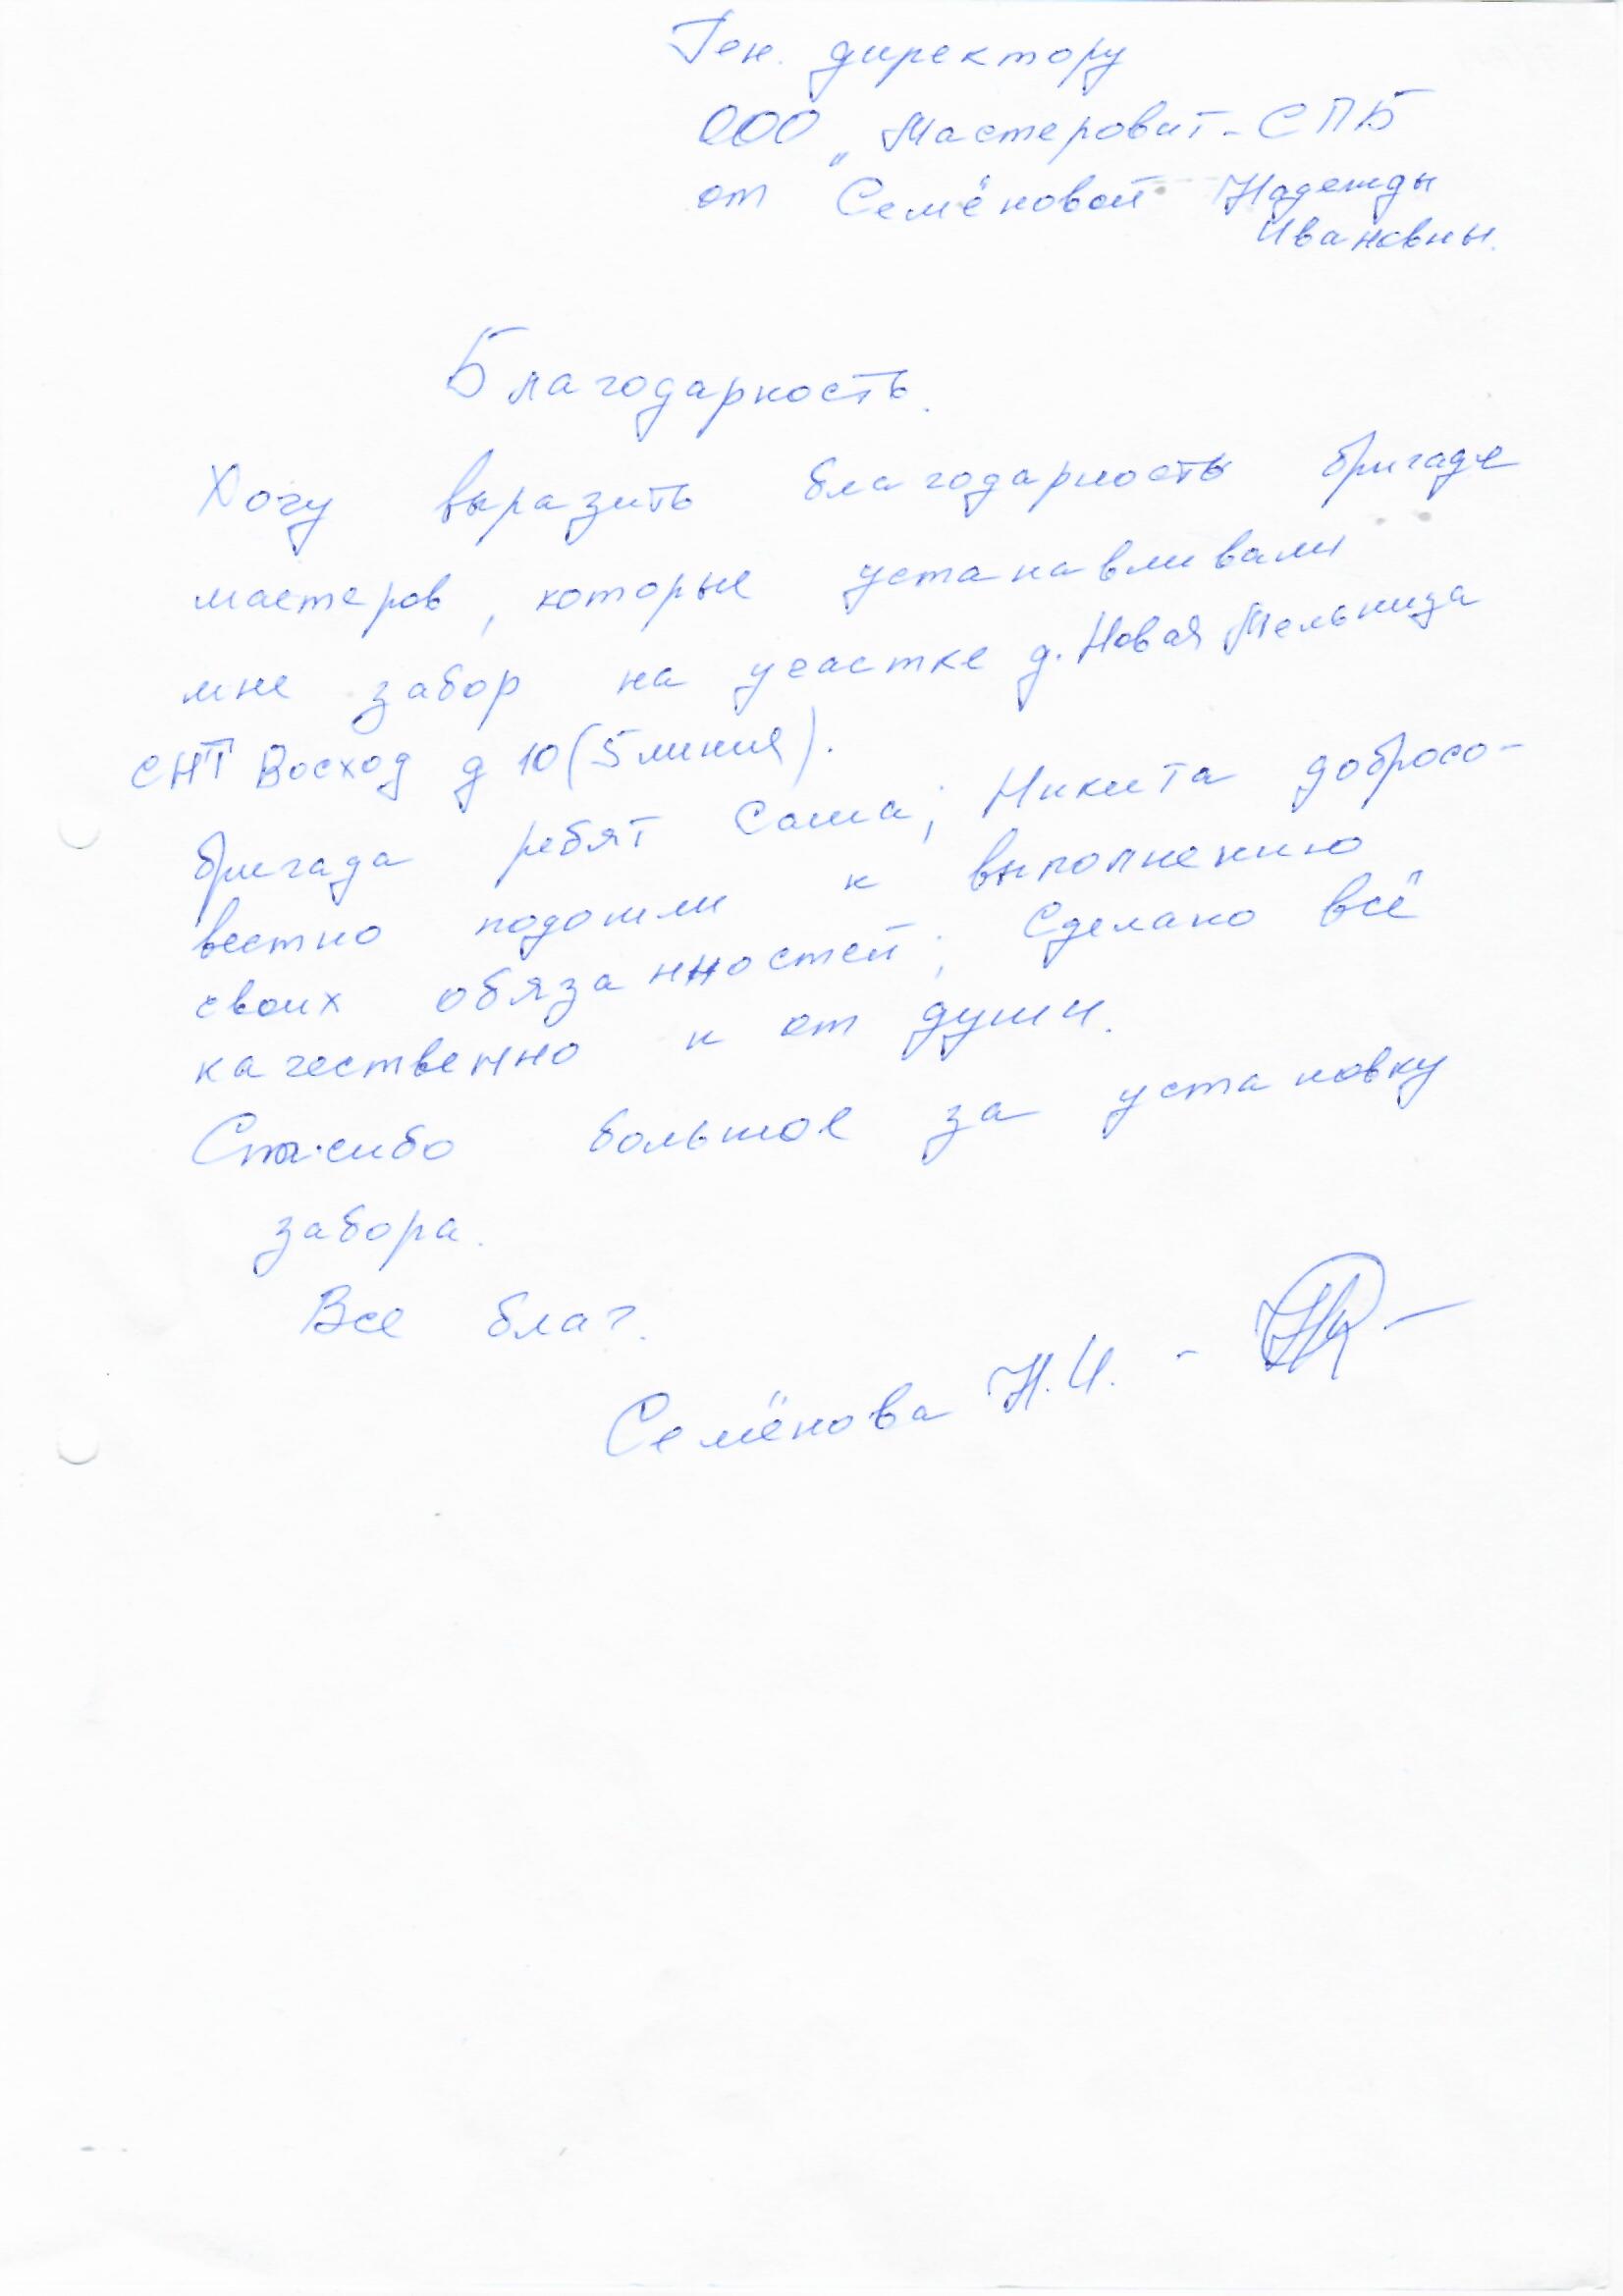 Ген. директору
ООО „Мастеровит-СПБ
от Семёновой Надежды
Ивановны.
Благодарность.
Хочу выразить благодарность бригаде
мастеров, которые устанавливали
мне забор на участке д. Новая Мельница
СНТ Восход д 10 (5 линия).
бригада ребят Саша, Никита добросо-
вестно подошли к выполнению
своих обязанностей, сделано всё
качественно и от души.
Спасибо большое за установку
забора.
Все благ.
Семёнова Н.И. -